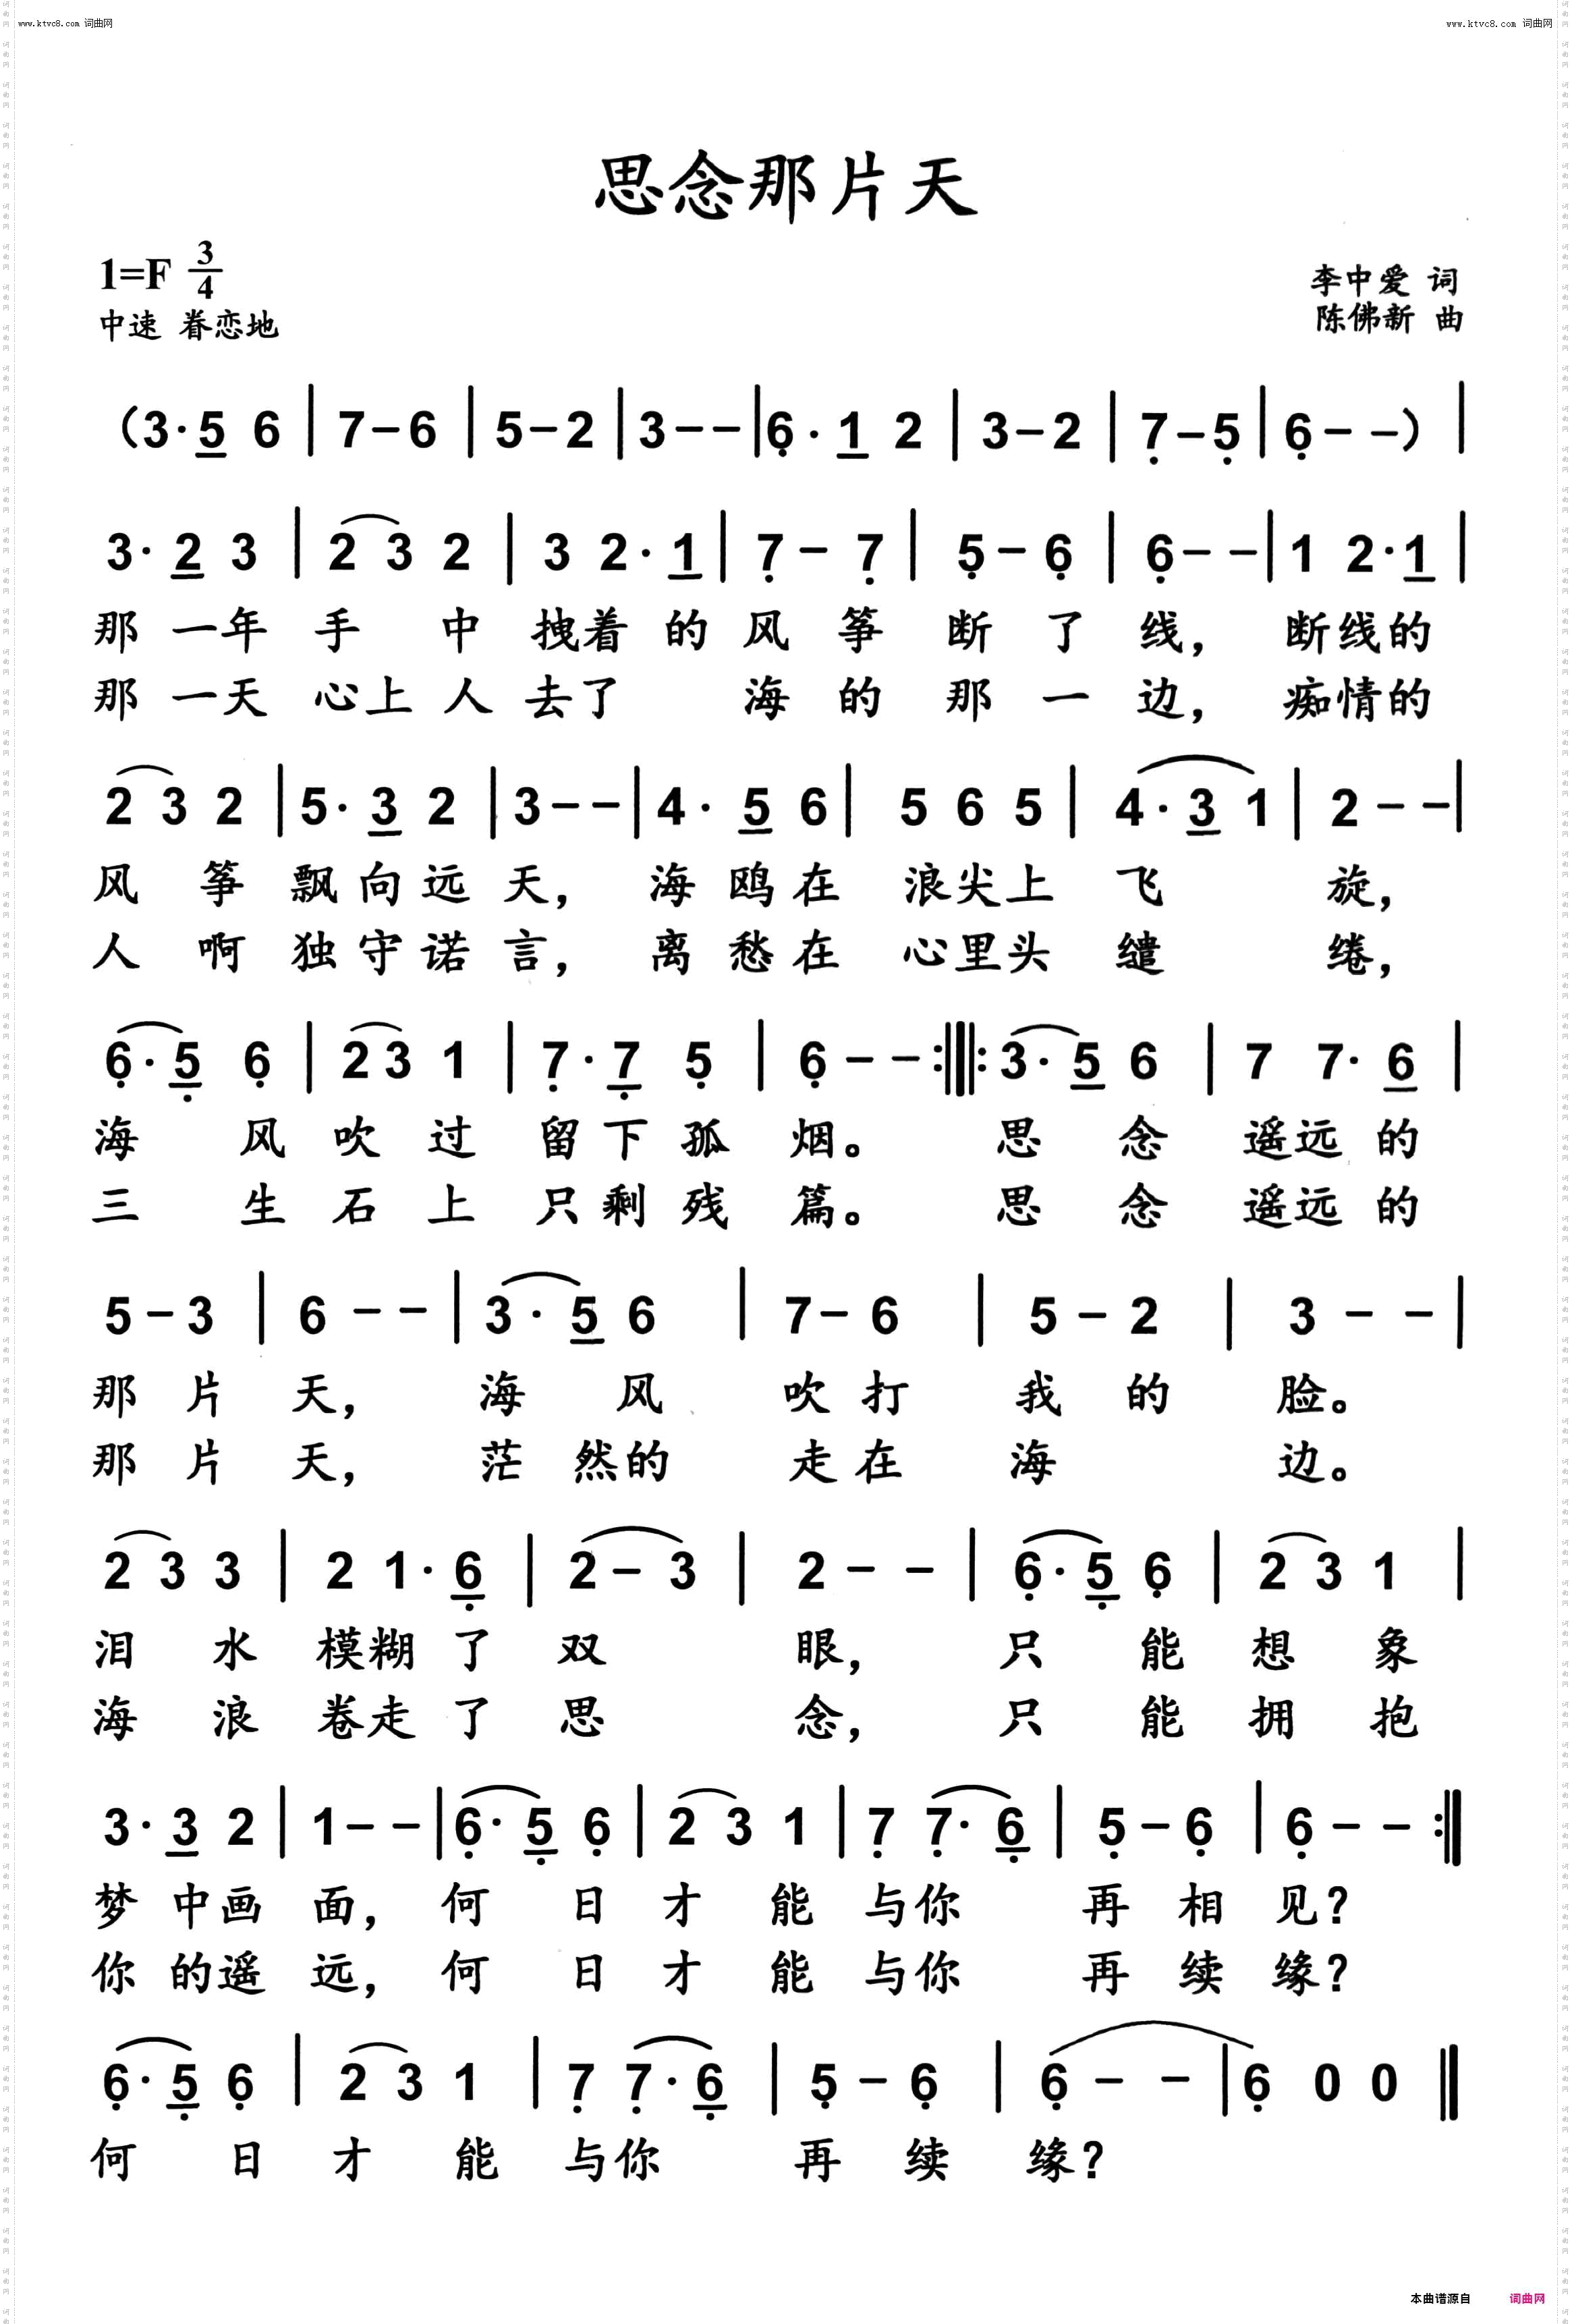 www.ktvc8.com 词曲网 www.ktvc8.com 词曲网
思念那片天
1=F 3/4
李中爱 词
中速 眷恋地
陈佛新 曲
(3·5 6 | 7-6 | 5-2 | 3-- | 6·1 2 | 3-2 | 7-5 | 6--) |
3·2 3 | 2 3 2 | 3 2·1 | 7-7 | 5-6 | 6-- | 1 2·1 |
那 一年 手 中 拽着 的 风 筝 断 了 线, 断线的
那 一天 心上 人 去了 海 的 那 一 边, 痴情的
2 3 2 | 5·3 2 | 3-- | 4·5 6 | 5 6 5 | 4·3 1 | 2-- |
风 筝 飘 向 远 天, 海 鸥 在 浪尖上 飞 旋,
人 啊 独 守 诺 言, 离 愁 在 心里头 缱 绻,
6·5 6 | 2 3 1 | 7·7 5 | 6-- :||: 3·5 6 | 7 7·6 |
海 风 吹 过 留 下 孤 烟。 思 念 遥远 的
三 生 石 上 只 剩 残 篇。 思 念 遥远 的
5-3 | 6-- | 3·5 6 | 7-6 | 5-2 | 3-- |
那 片 天, 海 风 吹 打 我 的 脸。
那 片 天, 茫 然的 走 在 海 边。
2 3 3 | 2 1·6 | 2-3 | 2-- | 6·5 6 | 2 3 1 |
泪 水 模糊 了 双 眼, 只 能 想 象
海 浪 卷走 了 思 念, 只 能 拥 抱
3·3 2 | 1-- | 6·5 6 | 2 3 1 | 7 7·6 | 5-6 | 6-- :||
梦 中画 面, 何 日 才 能 与你 再 相 见?
你 的遥 远, 何 日 才 能 与你 再 续 缘?
6·5 6 | 2 3 1 | 7 7·6 | 5-6 | 6-- | 6 0 0 ||
何 日 才 能 与你 再 续 缘?
本曲谱源自 词曲网